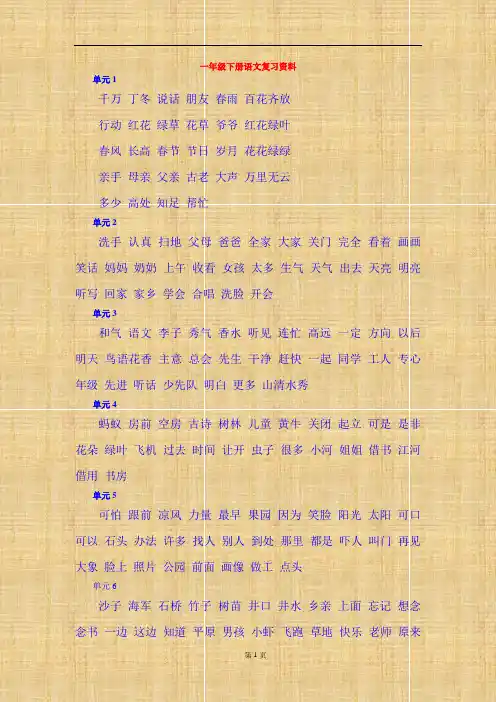 一年级下册语文复习资料
单元1
千万 丁冬 说话 朋友 春雨 百花齐放
行动 红花 绿草 花草 爷爷 红花绿叶
春风 长高 春节 节日 岁月 花花绿绿
亲手 母亲 父亲 古老 大声 万里无云
多少 高处 知足 帮忙
单元2
洗手 认真 扫地 父母 爸爸 全家 大家 关门 完全 看着 画画
笑话 妈妈 奶奶 上午 收看 女孩 太多 生气 天气 出去 天亮 明亮
听写 回家 家乡 学会 合唱 洗脸 开会
单元3
和气 语文 李子 秀气 香水 听见 连忙 高远 一定 方向 以后
明天 鸟语花香 主意 总会 先生 干净 赶快 一起 同学 工人 专心
年级 先进 听话 少先队 明白 更多 山清水秀
单元4
蚂蚁 房前 空房 古诗 树林 儿童 黄牛 关闭 起立 可是 是非
花朵 绿叶 飞机 过去 时间 让开 虫子 很多 小河 姐姐 借书 江河
借用 书房
单元5
可怕 跟前 凉风 力量 最早 果园 因为 笑脸 阳光 太阳 可口
可以 石头 办法 许多 找人 别人 到处 那里 都是 吓人 叫门 再见
大象 脸上 照片 公园 前面 画像 做工 点头
单元6
沙子 海军 石桥 竹子 树苗 井口 井水 乡亲 上面 忘记 想念
念书 一边 这边 知道 平原 男孩 小虾 飞跑 草地 快乐 老师 原来
第1页